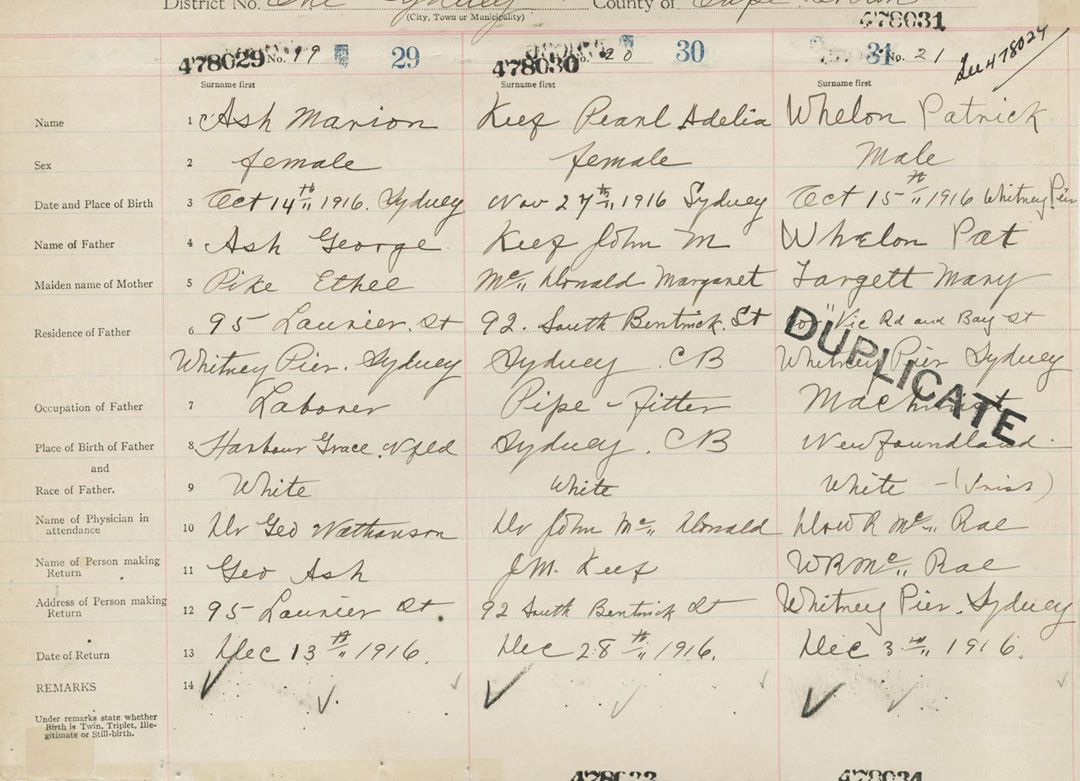 District No. One Sydney County of Cape Breton
(City, Town or Municipality)
478031
478029 No. 19 29
478030 No. 20 30
31 No. 21 See 478024
Surname first Surname first Surname first
Name 1 Ash Marion Keef Pearl Adelia Whelon Patrick
Sex 2 female female Male
Date and Place of Birth 3 Oct 14th 1916. Sydney Nov 27th 1916 Sydney Oct 15th 1916 Whitney Pier
Name of Father 4 Ash George Keef John M Whelon Pat
Maiden name of Mother 5 Pike Ethel Mc Donald Margaret Targett Mary
Residence of Father 6 95 Laurier St 92. South Bentinck St Vic Rd and Bay St
Whitney Pier. Sydney Sydney. CB Whitney Pier Sydney
DUPLICATE
Occupation of Father 7 Laborer Pipe-fitter Machinist
Place of Birth of Father 8 Harbour Grace. Nfld Sydney. CB Newfoundland
and
Race of Father. 9 White White White - (Irish)
Name of Physician in
attendance 10 Dr Geo Nathanson Dr John Mc Donald Dr W R Mc Rae
Name of Person making
Return 11 Geo Ash J.M. Keef WR Mc Rae
Address of Person making
Return 12 95 Laurier St 92 South Bentinck St Whitney Pier. Sydney
Date of Return 13 Dec 13th 1916. Dec 28th 1916. Dec 3rd 1916.
REMARKS 14
Under remarks state whether
Birth is Twin, Triplet, Ille-
gitimate or Still-birth.
478033 478034